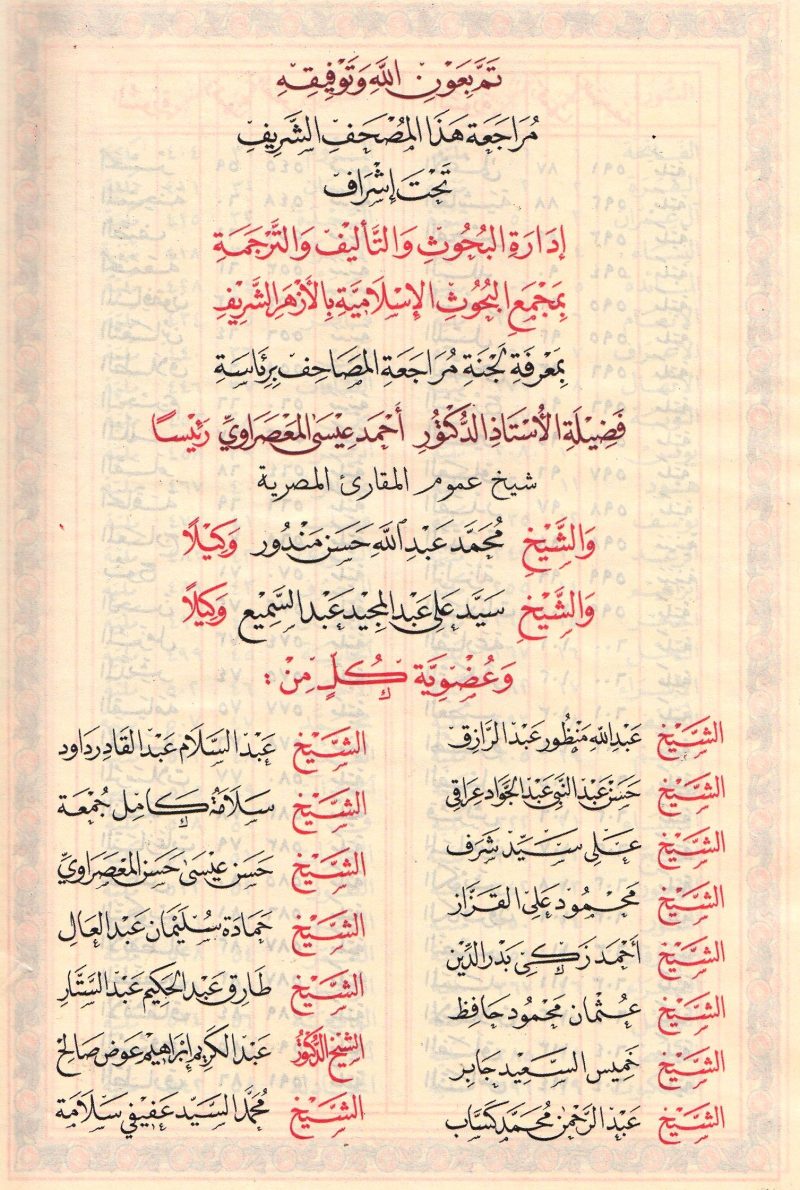 تَمَّ بِعَوْنِ اللَّهِ وَتَوْفِيقِهِ
مُرَاجَعَة هَذَا المُصْحَفِ الشَّرِيفِ
تَحْتَ إِشْرَافِ
إِدَارَةِ البُحُوثِ وَالتَّأْلِيفِ وَالتَّرْجَمَةِ
بِمَجْمَعِ البُحُوثِ الإِسْلَامِيَّةِ بِالأَزْهَرِ الشَّرِيفِ
بِمَعْرِفَةِ لَجْنَةِ مُرَاجَعَةِ المَصَاحِفِ بِرِئَاسَةِ
فَضِيلَةِ الأُسْتَاذِ الدُّكْتُورِ أَحْمَد عِيسَى المَعْصَرَاوِيِّ رَئِيسًا
شيخ عموم المقارئ المصرية
وَالشَّيْخِ مُحَمَّد عَبْدِ اللَّهِ حَسَن مَنْدُور وَكِيْلًا
وَالشَّيْخِ سَيِّد عَلِي عَبْد المَجِيْد عَبْد السَّمِيْع وَكِيْلًا
وَعُضْوِيَّة كُلٍّ مِنْ :
الشَّيْخ عَبْد اللَّه مَنْظُور عَبْد الرَّازِق
الشَّيْخ حَسَنْ عَبْد النَّبِي عَبْد الجَوَاد عِرَاقِي
الشَّيْخ عَلِي سَيِّد شَرَف
الشَّيْخ مَحْمُود عَلِي القَزَّاز
الشَّيْخ أَحْمَد زَكِي بَدْر الدِّيْن
الشَّيْخ عُثْمَان مَحْمُود حَافِظ
الشَّيْخ خَمِيْس السَّعِيْد جَابِر
الشَّيْخ عَبْد الرَّحْمٰن مُحَمَّد كَسَّاب
الشَّيْخ عَبْد السَّلَام عَبْد القَادِر دَاود
الشَّيْخ سَلَامَة كَامِل جُمْعَة
الشَّيْخ حَسَن عِيْسَى حَسَن المَعْصَرَاوِيّ
الشَّيْخ حَمَادَة سُلَيْمَان عَبْد العَال
الشَّيْخ طَارِق عَبْد الحَكِيْم عَبْد السَّتَّار
الشَّيْخ الدُّكْتُوْر عَبْد الكَرِيْم إِبْرَاهِيْم عَوَض صَالِح
الشَّيْخ مُحَمَّد السَّيِّد عَفِيْفِي سَلَامَة